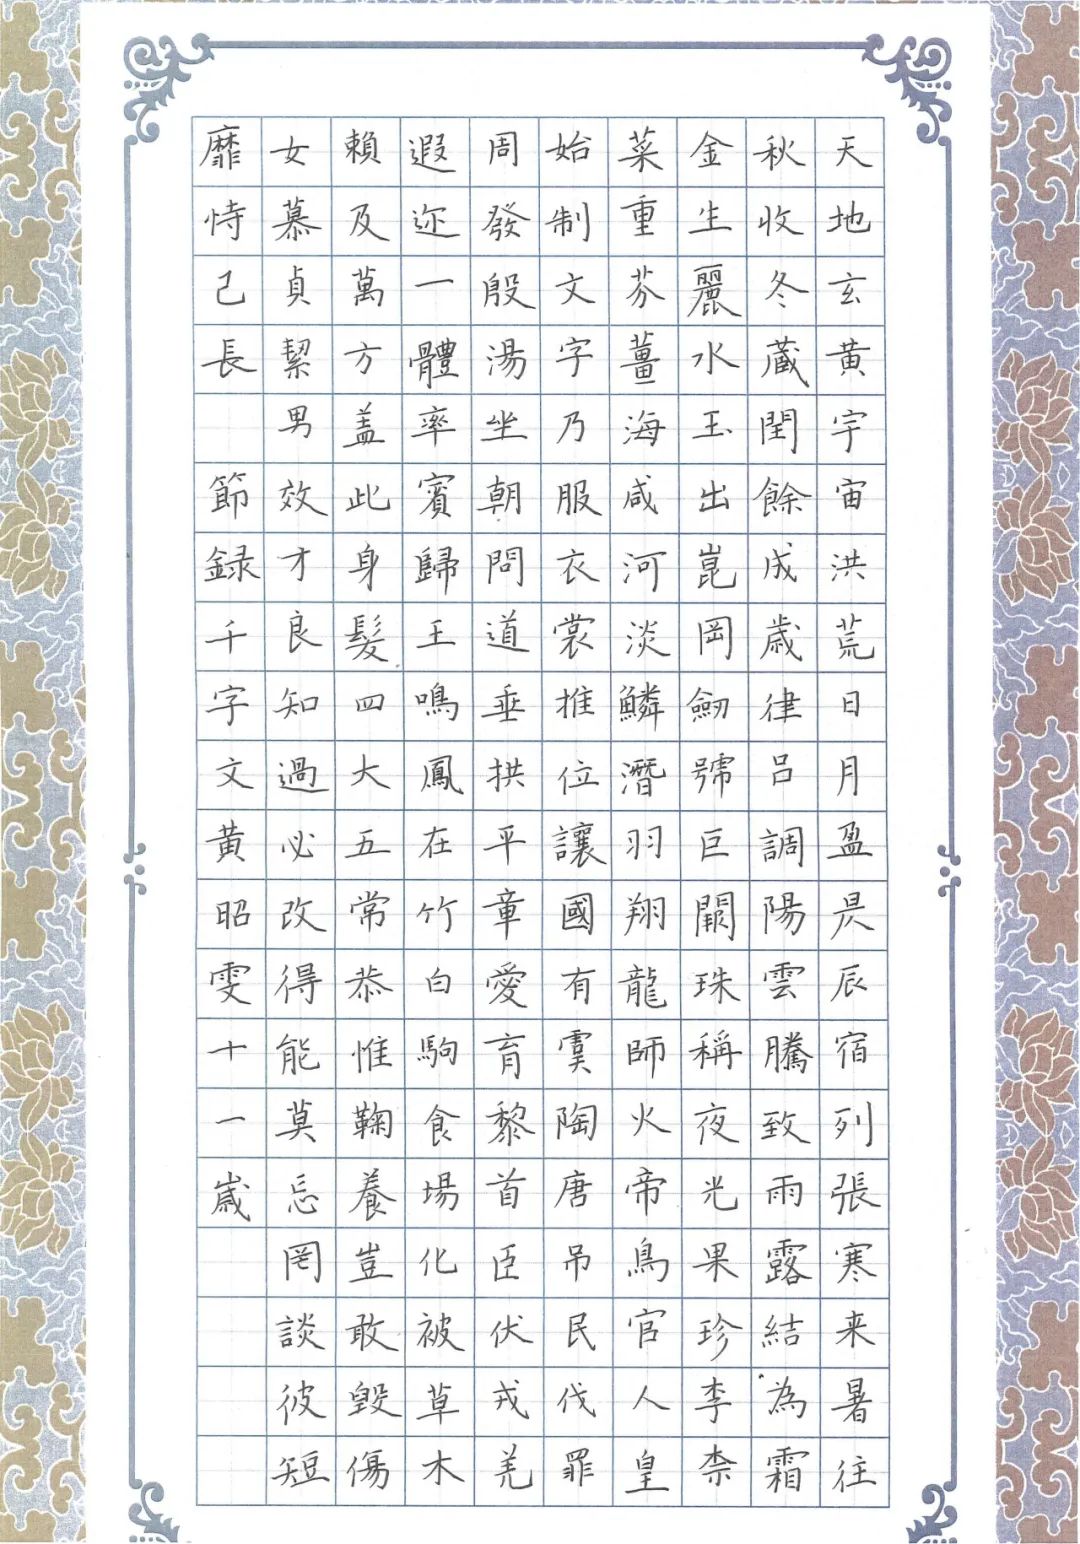 天地玄黃宇宙洪荒日月盈昃辰宿列張寒来暑往
秋收冬藏閏餘成歲律呂調陽雲騰致雨露結為霜
金生麗水玉出崑岡劒號巨闕珠稱夜光果珍李柰
菜重芥薑海咸河淡鱗潛羽翔龍師火帝鳥官人皇
始制文字乃服衣裳推位讓國有虞陶唐吊民伐罪
周發殷湯坐朝問道垂拱平章愛育黎首臣伏戎羌
遐迩一體率賓歸王鳴鳳在竹白駒食場化被草木
賴及萬方盖此身髮四大五常恭惟鞠養豈敢毀傷
女慕貞絜男效才良知過必改得能莫忘罔談彼短
靡恃己長 節録千字文黃昭雯十一歲